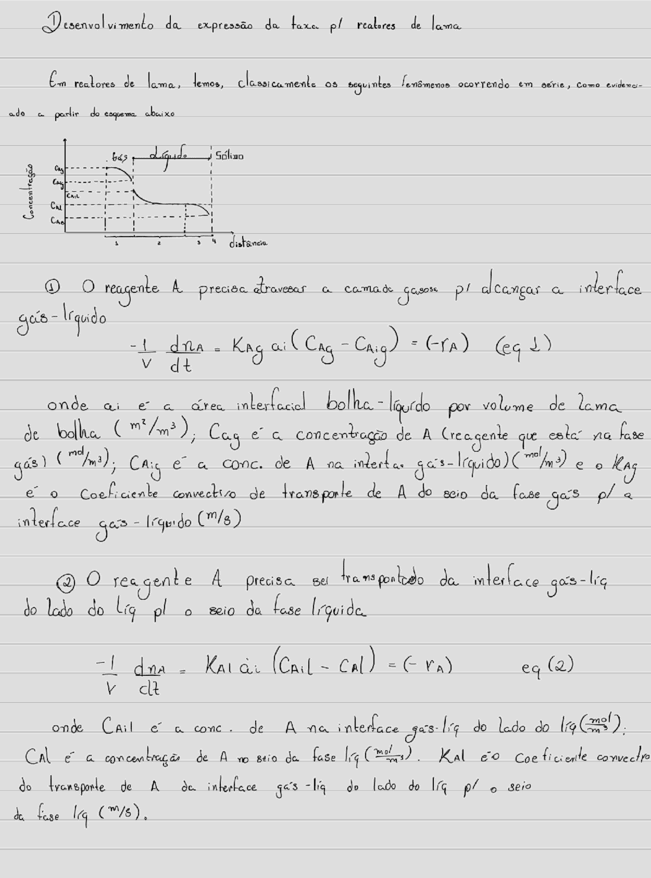 Desenvolvimento da expressão da taxa p/ reatores de lama
Em reatores de lama, temos, classicamente os seguintes fenômenos ocorrendo em série, como evidenci-
ado a partir do esquema abaixo
Gás Líquido Sólido
Concentração
CAg
CAig
CAil
CAl
CAs
1 2 3 4 distância
① O reagente A precisa atravesar a camada gasosa p/ alcançar a interface
gás-líquido
-1/V dnA/dt = KAg ai (CAg - CAig) = (-rA) (eq 1)
onde ai é a área interfacial bolha-líquido por volume de lama
de bolha (m²/m³); Cag é a concentração de A (reagente que está na fase
gás) (mol/m³); CAig é a conc. de A na interfa. gás-líquido)(mol/m³) e o KAg
é o coeficiente convectivo de transporte de A do seio da fase gás p/ a
interface gás-líquido (m/s)
② O reagente A precisa ser transportado da interface gás-liq
do lado do líq p/ o seio da fase líquida
-1/V dnA/dt = KAl ai (CAil - CAl) = (-rA) eq (2)
onde CAil é a conc. de A na interface gás-liq do lado do líq (mol/m³);
CAl é a concentração de A no seio da fase líq (mol/m³). KAl é o coeficiente convectivo
do transporte de A da interface gás-liq do lado do líq p/ o seio
da fase líq (m/s).